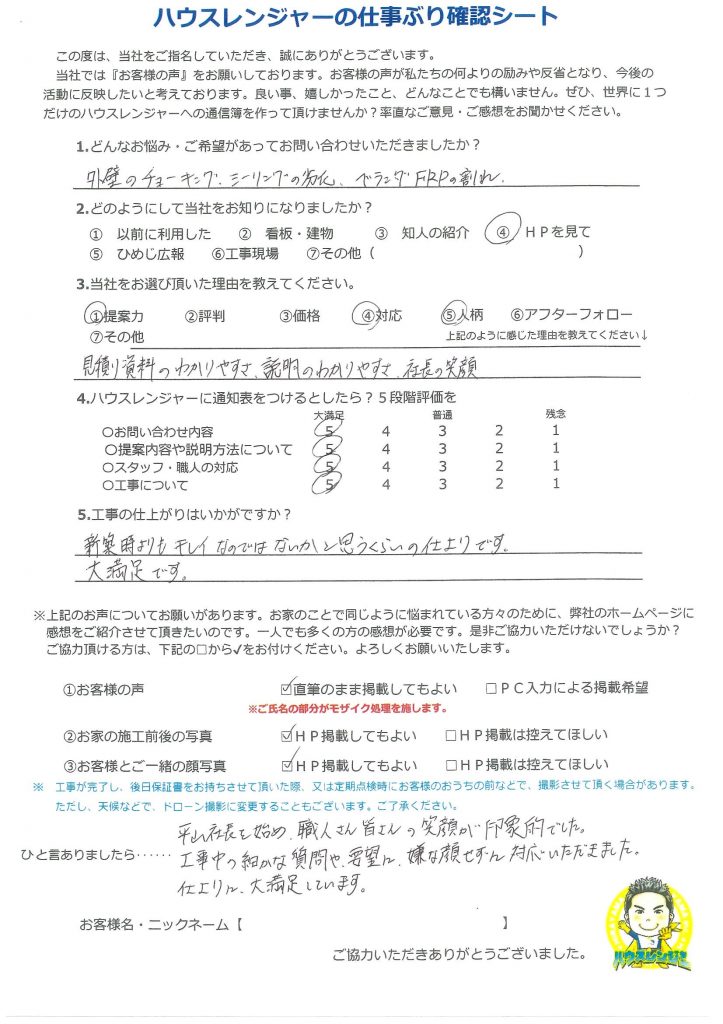 ハウスレンジャーの仕事ぶり確認シート
この度は、当社をご指名していただき、誠にありがとうございます。
当社では『お客様の声』をお願いしております。お客様の声が私たちの何よりの励みや反省となり、今後の
活動に反映したいと考えております。良い事、嬉しかったこと、どんなことでも構いません。ぜひ、世界に１つ
だけのハウスレンジャーへの通信簿を作って頂けませんか？率直なご意見・ご感想をお聞かせください。
1.どんなお悩み・ご希望があってお問い合わせいただきましたか？
外壁のチョーキング、シーリングの劣化、ベランダFRPの割れ.
2.どのようにして当社をお知りになりましたか？
① 以前に利用した ② 看板・建物 ③ 知人の紹介 ④ ＨＰを見て
⑤ ひめじ広報 ⑥工事現場 ⑦その他（ ）
3.当社をお選び頂いた理由を教えてください。
①提案力 ②評判 ③価格 ④対応 ⑤人柄 ⑥アフターフォロー
⑦その他 上記のように感じた理由を教えてください↓
見積り資料のわかりやすさ、説明のわかりやすさ、社長の笑顔
4.ハウスレンジャーに通知表をつけるとしたら？５段階評価を
大満足 普通 残念
○お問い合わせ内容 5 4 3 2 1
○提案内容や説明方法について 5 4 3 2 1
○スタッフ・職人の対応 5 4 3 2 1
○工事について 5 4 3 2 1
5.工事の仕上がりはいかがですか？
新築時よりもキレイなのではないかと思うくらいの仕上りです。
大満足です。
※上記のお声についてお願いがあります。お家のことで同じように悩まれている方々のために、弊社のホームページに
感想をご紹介させて頂きたいのです。一人でも多くの方の感想が必要です。是非ご協力いただけないでしょうか？
ご協力頂ける方は、下記の□から✓をお付けください。よろしくお願いいたします。
①お客様の声 ☑直筆のまま掲載してもよい □ＰＣ入力による掲載希望
※ご氏名の部分がモザイク処理を施します。
②お家の施工前後の写真 ☑ＨＰ掲載してもよい □ＨＰ掲載は控えてほしい
③お客様とご一緒の顔写真 ☑ＨＰ掲載してもよい □ＨＰ掲載は控えてほしい
※ 工事が完了し、後日保証書をお持ちさせて頂いた際、又は定期点検時にお客様のおうちの前などで、撮影させて頂く場合があります。
ただし、天候などで、ドローン撮影に変更することもございます。ご了承ください。
平山社長を始め、職人さん皆さんの笑顔が印象的でした。
ひと言ありましたら‥‥‥ 工事中の細かな質問や、要望に、嫌な顔せずに対応いただきました。
仕上りに、大満足しています。
お客様名・ニックネーム【 】
ご協力いただきありがとうございました。
ハウスレンジャー